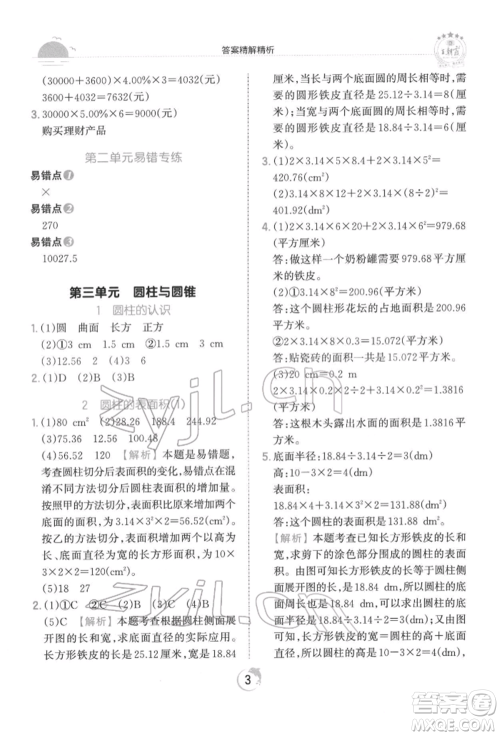 答案精解精析
(30000+3600)×4.00%×3=4032(元)
3600+4032=7632(元)
3. 30000×5.00%×6=9000(元)
购买理财产品
第二单元易错专练
易错点1
×
易错点2
270
易错点3
10027.5
第三单元 圆柱与圆锥
1 圆柱的认识
1. (1)圆 曲面 长方 正方
(2)①3 cm 1.5 cm ②4 cm 3 cm
(3)12.56 3 6
2. (1)D (2)B (3)B
2 圆柱的表面积(1)
1. (1)80 cm² (2)28.26 188.4 244.92
(3)75.36 100.48
(4)56.52 120 [解析] 本题是易错题,
考查圆柱切分后表面积的变化,易错点在混
淆不同方法切分后表面积的增加量。
按照甲的方法切分,表面积增加的是两个
底面的面积,为3.14×3²×2=56.52(cm²);
按乙的方法切分,表面积增加的是以圆柱
的高、底面直径为长、宽的长方形的面积,为
10×3×2×2=120(cm²)。
(5)18 27
2. (1)①C ②C (2)B (3)C (4)B
(5)C [解析] 本题考查根据圆柱侧面
展开图的长和宽,求底面直径的实际应用。
长方形铁皮的长是25.12厘米,宽是18.84
厘米,当长与两个底面圆的周长相等时,需
要的圆形铁皮直径是25.12÷3.14=8(厘
米)。当宽与两个底面圆的周长相等时,需
要的圆形铁皮直径是18.84÷3.14=6(厘
米)。
3. (1)2×3.14×5×8.4+2×3.14×5²=
420.76(cm²)
(2)3.14×8×12+2×3.14×(8÷2)²=
401.92(cm²)
4. (1)2×3.14×6×20+2×3.14×6²=979.68
(平方厘米)
答:做这样的一个奶粉罐需要979.68平方
厘米的铁皮。
(2)①3.14×8²=200.96(平方米)
答:这个圆柱形花坛的占地面积是200.96
平方米。
②2×3.14×8×0.3=15.072(平方米)
答:贴瓷砖的面积一共是15.072平方米。
(3)20 cm=0.2 m
2×3.14×0.2×2÷2+3.14×0.2²=1.3816
(平方米)
答:这根木头露出水面的面积是1.3816平
方米。
5. 底面半径:18.84÷3.14÷2=3(dm)
高:10-3×2=4(dm)
表面积:
18.84×4+3.14×3²×2=131.88(dm²)
答:这个圆柱的表面积是131.88 dm²。
[解析] 本题考查已知长方形铁皮的长和
宽,求剪下的涂色部分围成的圆柱的表面
积。因为长方形铁皮的长是18.84 dm,所
以圆柱的底面半径是18.84÷3.14÷2=
3(dm)。长方形铁皮的宽=圆柱的高+底
面直径,所以圆柱的高是10-3×2=4(dm)。
求出圆柱的底面半径和高后,可以求出圆
柱的表面积是18.84×4+3.14×3²×2=
3
zyjl.cn
zyjl.cn
答案圈
MXQE.COM